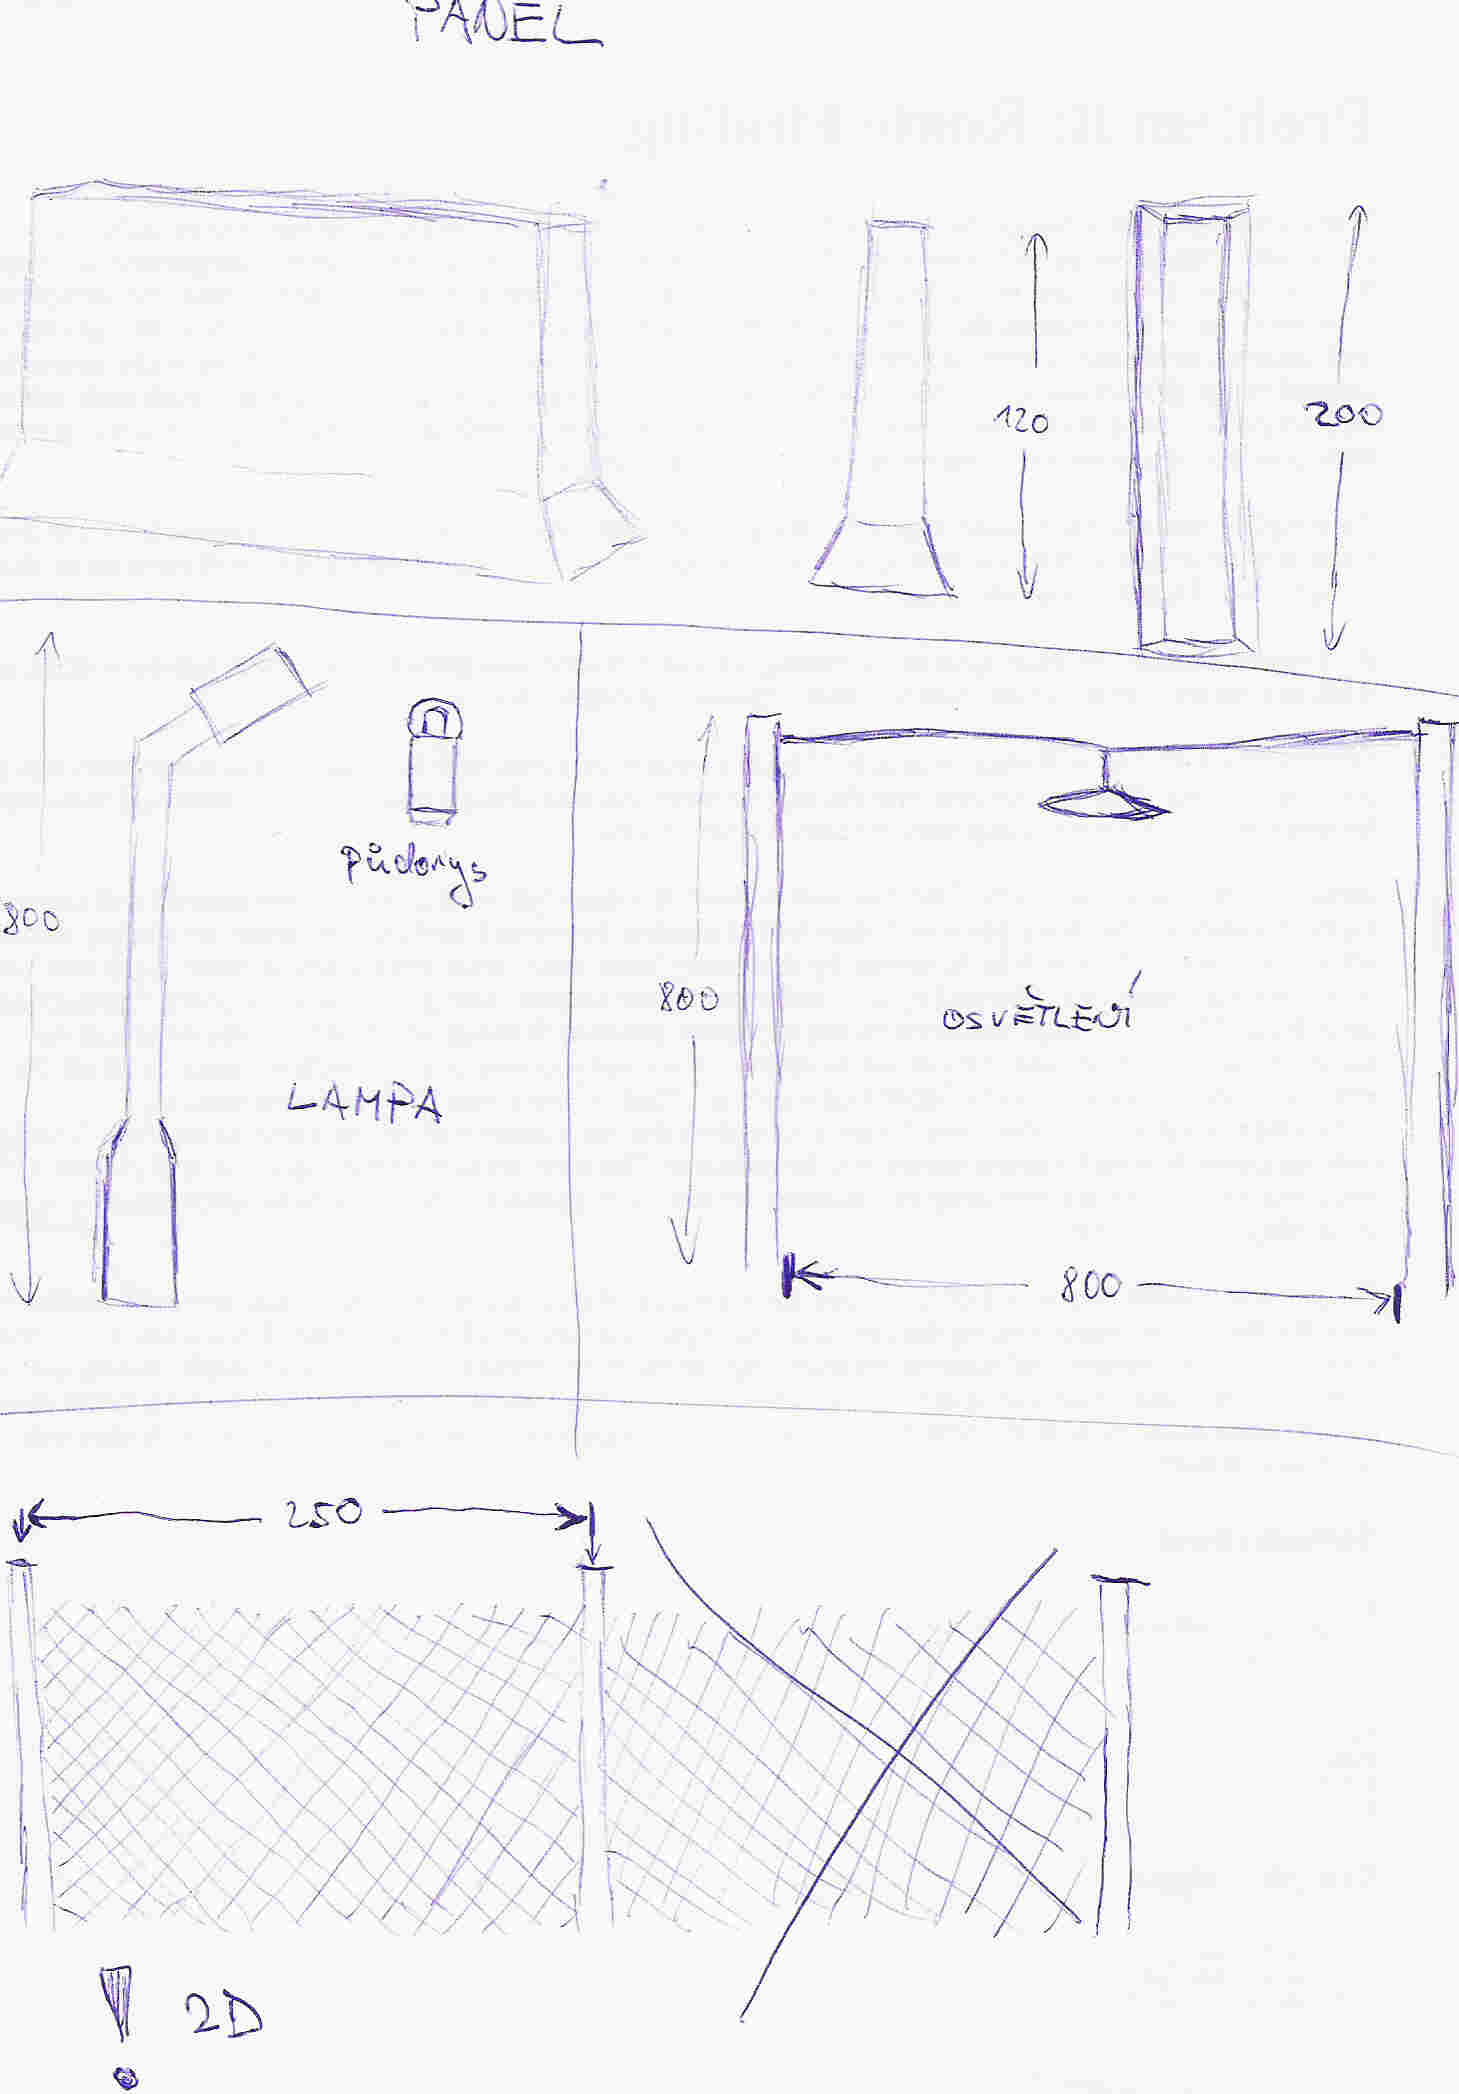 PANEL
120
200
800
půdorys
LAMPA
800
OSVĚTLENÍ
800
250
! 2D